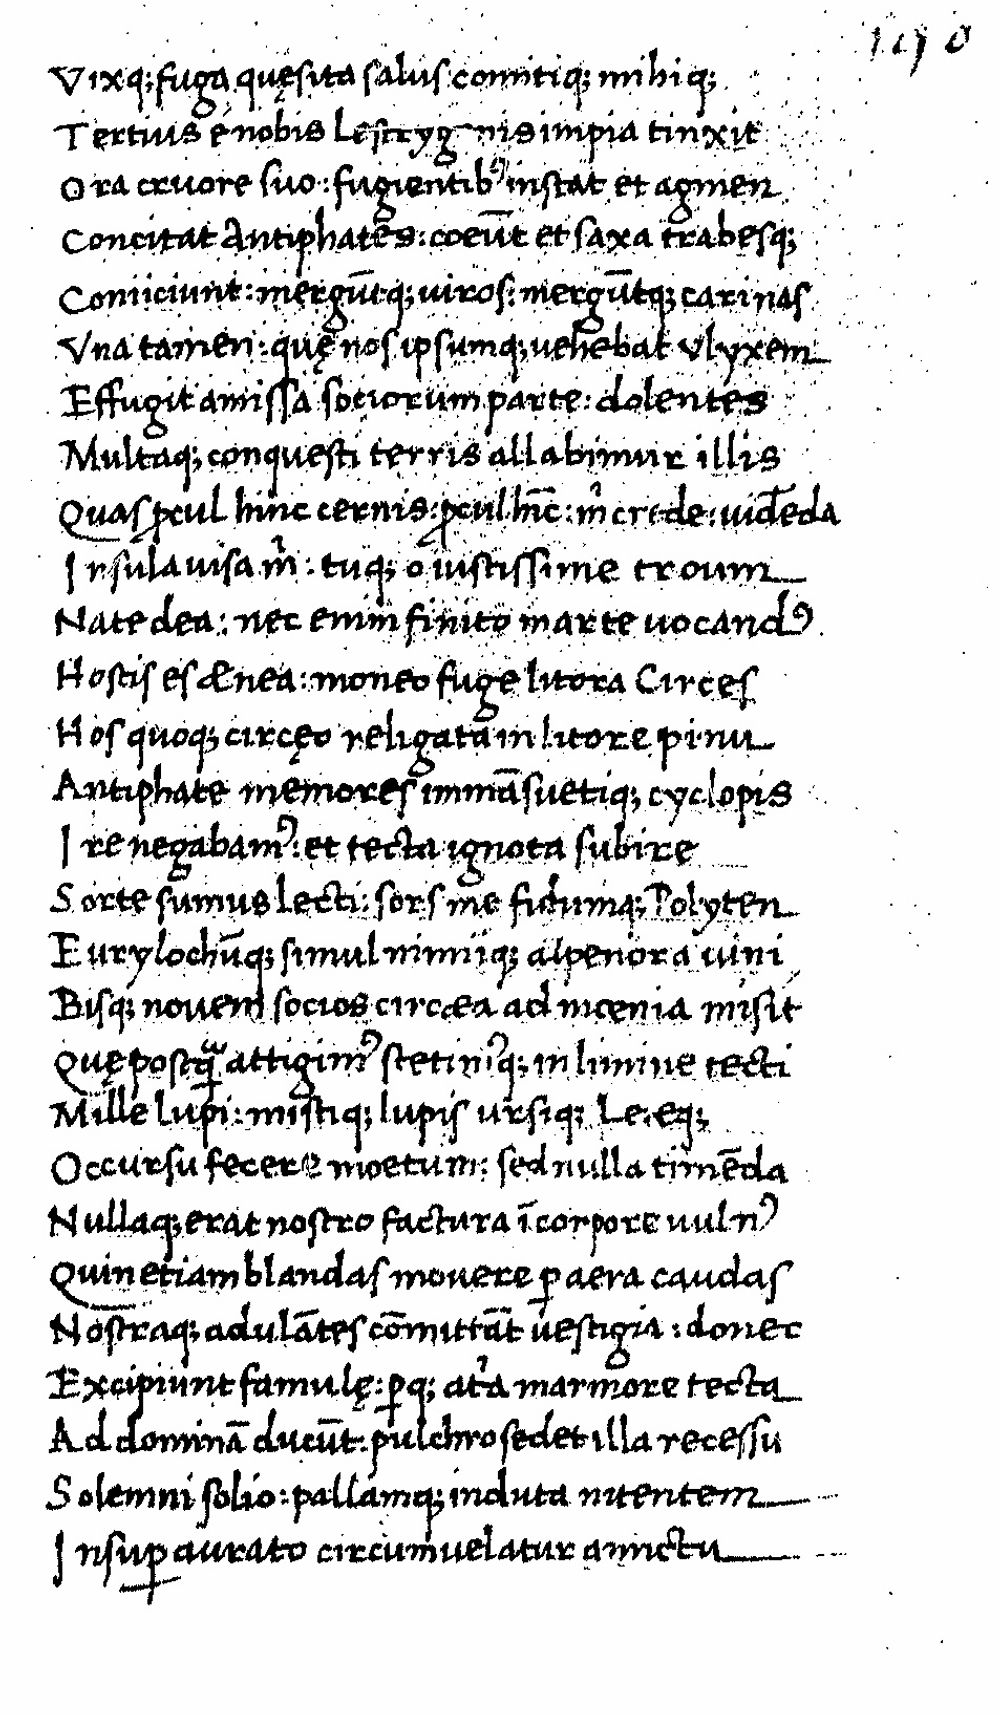 190
Vixq; fuga quęsita salus comitiq; mihiq;
Tertius é nobis Lestrygonis impia tinxit
Ora cruore suo: fugientibꝰ instat et agmen
Concitat Antiphates: coeūt et saxa trabesq;
Coniiciunt: mergūtq; uiros: mergūtq; carinas
Vna tamen: quę nos ipsumq; uehebat Vlyxem
Effugit amissa sociorum parte: dolentes
Multaq; conquesti terris allabimur illis
Quas ꝓcul hinc cernis: ꝓcul hīc: m̊ crede: uidēda
Insula uisa m̊: tuq; o iustissime troum
Nate dea: nec enim finito marte uocandꝰ
Hostis es ænea: moneo fuge litora Circes
Hos quoq; circęo religata in litore pinu
Antiphate memores immāsuetiq; cyclopis
Ire negabamꝰ: et tecta ignota subire
Sorte sumus lecti: sors me fidumq; Polyten
Eurylochūq; simul nimiiq; alpenora uini
Bisq; novem socios circæa ad mœnia misit
Quę postq̃ attigimꝰ stetimꝰq; in limine tecti
Mille lupi: mistiq; lupis ursiq; Leęq;
Occursu fecere moetum: sed nulla timēda
Nullaq; erat nostro factura ī corpore uulnꝰ
Quin etiam blandas movere ꝑ aera caudas
Nostraq; adulātes cōmittāt uestigia: donec
Excipiunt famulę: ꝑq; at'a marmore tecta
Ad dominā ducūt: pulchro sedet illa recessu
Solemni solio: pallamq; induta nitentem
Insuꝑ aurato circumuelatur amictu